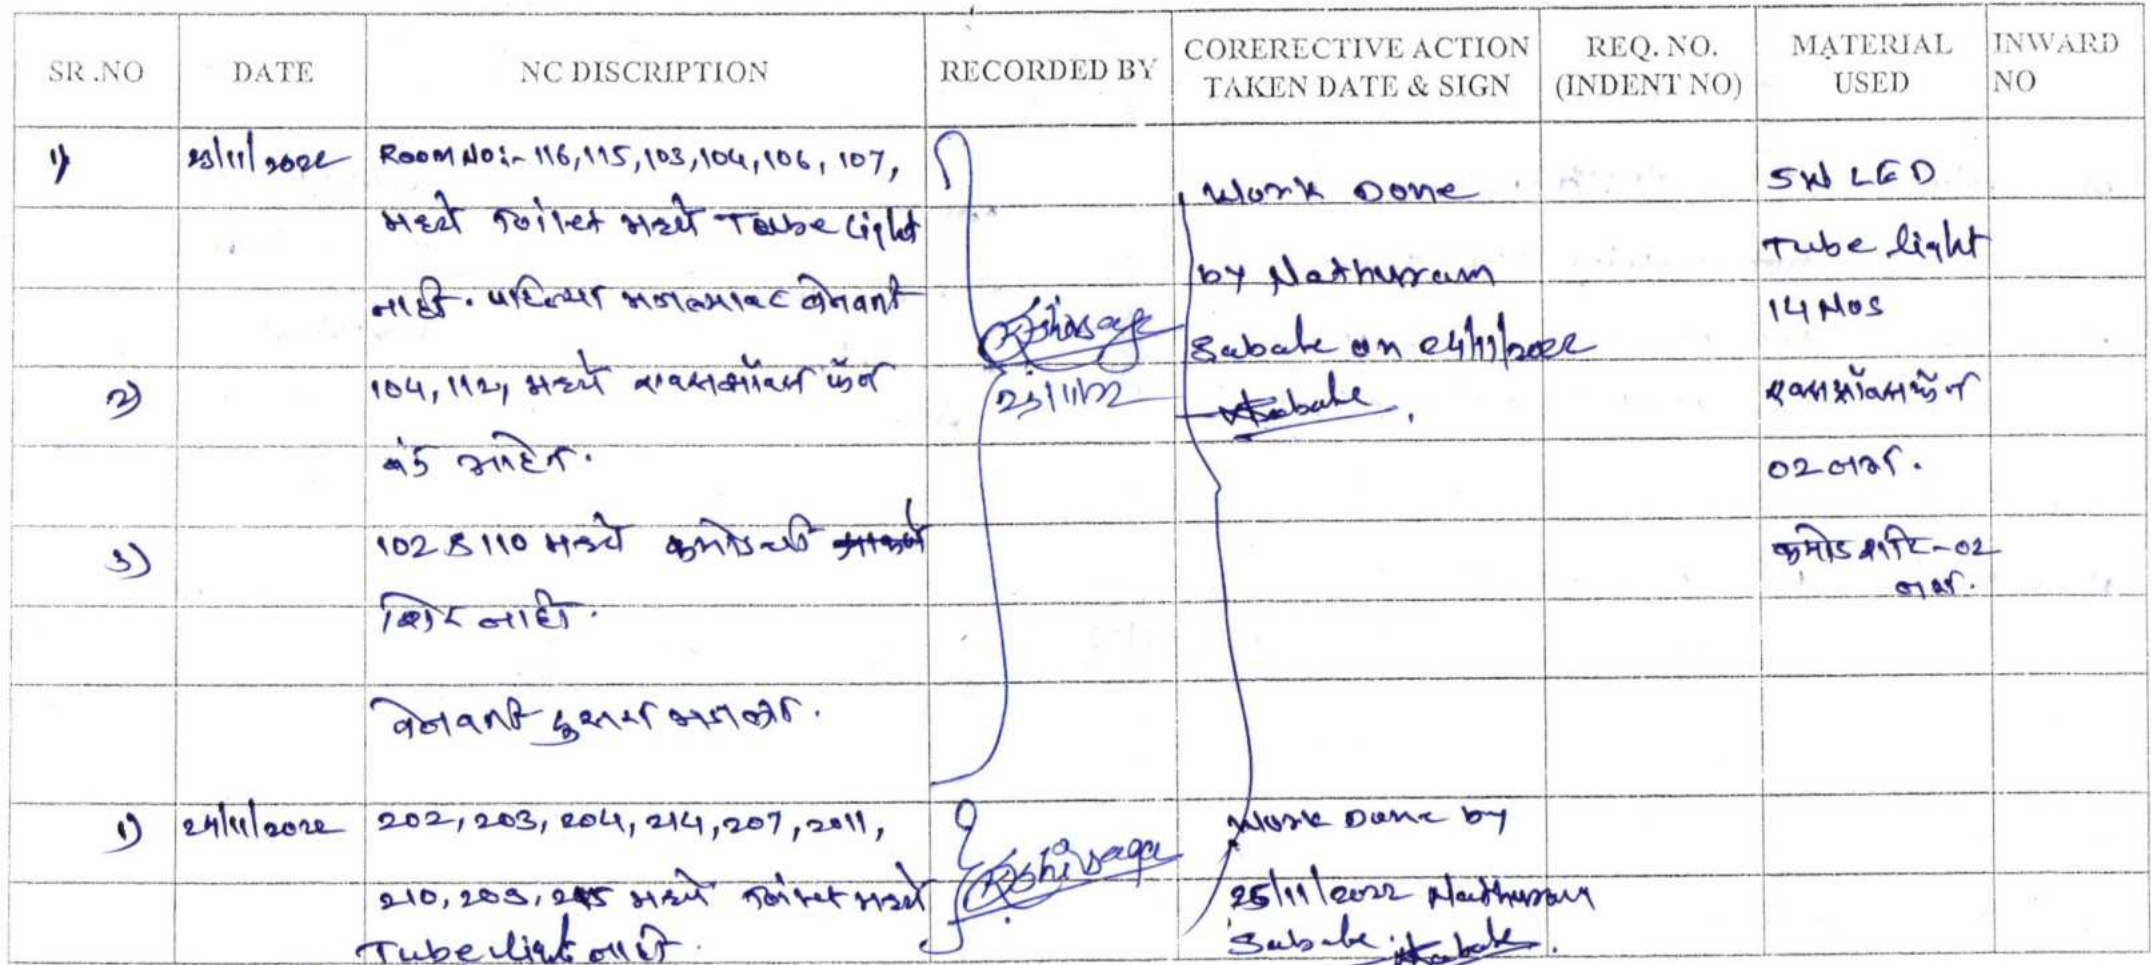 SR.NO DATE NC DISCRIPTION RECORDED BY CORERECTIVE ACTION TAKEN DATE & SIGN REQ. NO. (INDENT NO) MATERIAL USED INWARD NO
1) 23/11/2022 Room No:- 116, 115, 103, 104, 106, 107,
मध्ये टॉयलेट मध्ये Tube light
नाही.
Work Done
by Nathuram
Sabale on 24/11/2022
Sabale
5W LED
Tube light
14 Nos
2) 104, 112, मध्ये एक्झॉस्ट फॅन
बंद आहेत.
23/11/22
02 नग.
3) 102 & 110 मध्ये कमोडची
शिट नाही.
कमोड शीट - 02
नग.
1) 24/11/2022 202, 203, 204, 214, 207, 2011,
210, 209, 215 मध्ये टॉयलेट मध्ये
Tube light नाही.
Kshirsagar
Work Done by
25/11/2022 Nathuram
Sabale. Sabale